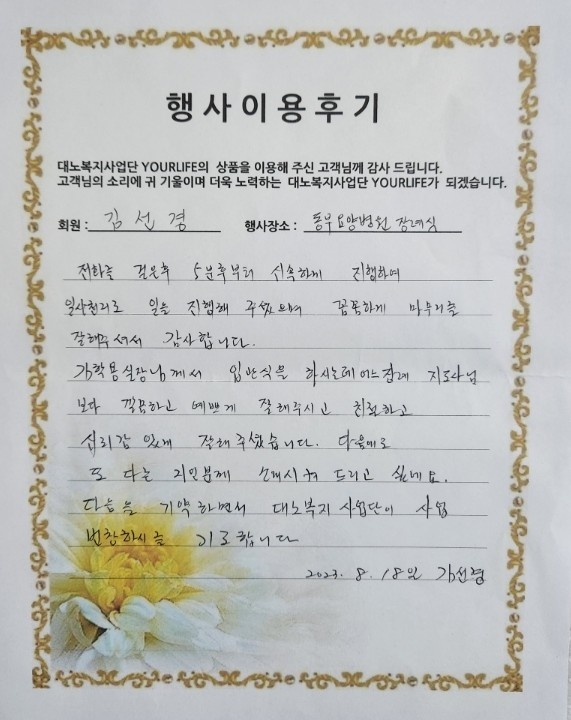 행사이용후기
대노복지사업단 YOURLIFE의 상품을 이용해 주신 고객님께 감사 드립니다.
고객님의 소리에 귀 기울이며 더욱 노력하는 대노복지사업단 YOURLIFE가 되겠습니다.
회원 : 김선경 행사장소 : 동부요양병원 장례식
전화를 걸은후 5분후부터 신속하게 진행하여
일사천리로 일을 진행해 주셨으며 꼼꼼하게 마무리를
잘해주셔서 감사합니다.
김학용실장님께서 입관식을 하시는데 어느 장례 지도사님
보다 깔끔하고 예쁘게 잘해주시고 친절하고
심리감 있게 잘해주셨습니다. 다음에도
또 다른 지인분께 소개시켜 드리고 싶네요.
다음을 기약하면서 대노복지 사업단이 사업
번창하시길 기도합니다
2023. 8. 18일 김선경